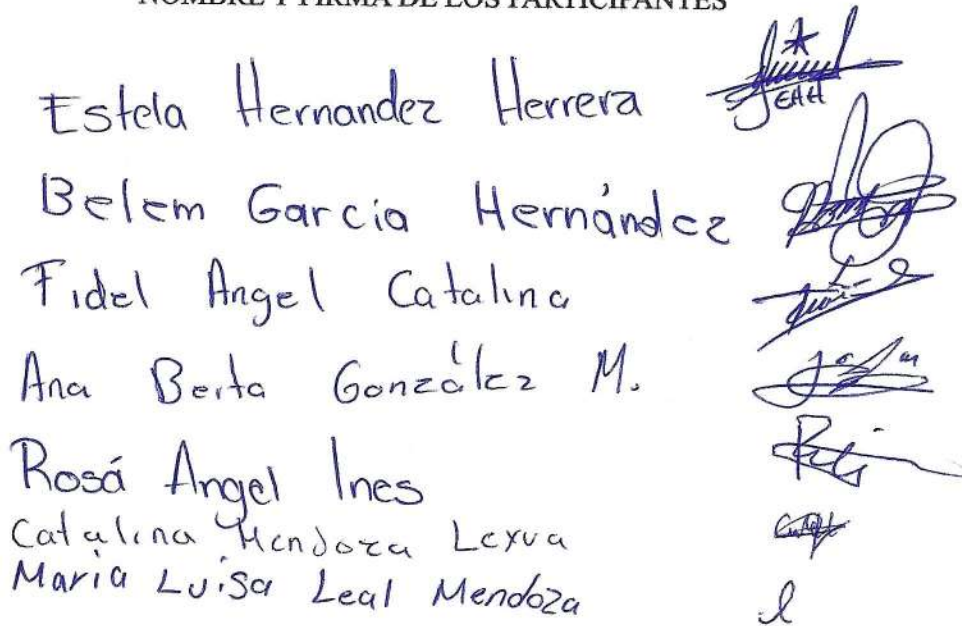 NOMBRE Y FIRMA DE LOS PARTICIPANTES
Estela Hernandez Herrera
EHH
Belem Garcia Hernández
Fidel Angel Catalina
Ana Berta González M.
Rosá Angel Ines
Catalina Mendoza Leyva
Maria Luisa Leal Mendoza